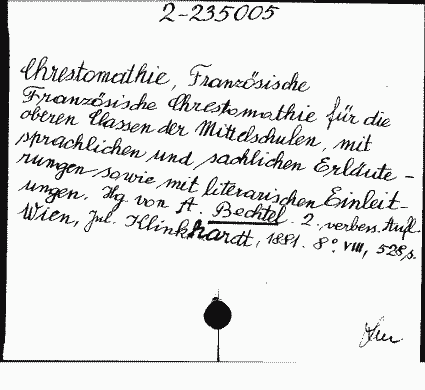 2-235005
Chrestomathie, Französische
Französische Chrestomathie für die
oberen Classen der Mittelschulen, mit
sprachlichen und sachlichen Erläute-
rungen sowie mit literarischen Einleit-
ungen. Hg von A. Bechtel. 2. verbess. Aufl.
Wien, Jul. Klinkhardt, 1881. 8° VIII, 528 s.